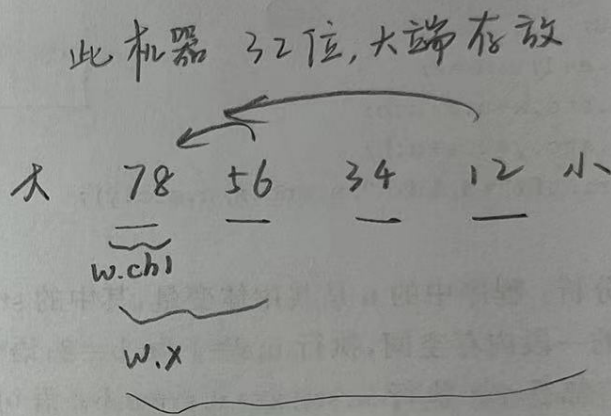 此机器 32位,大端存放
大 78 56 34 12 小
w.ch1
w.x